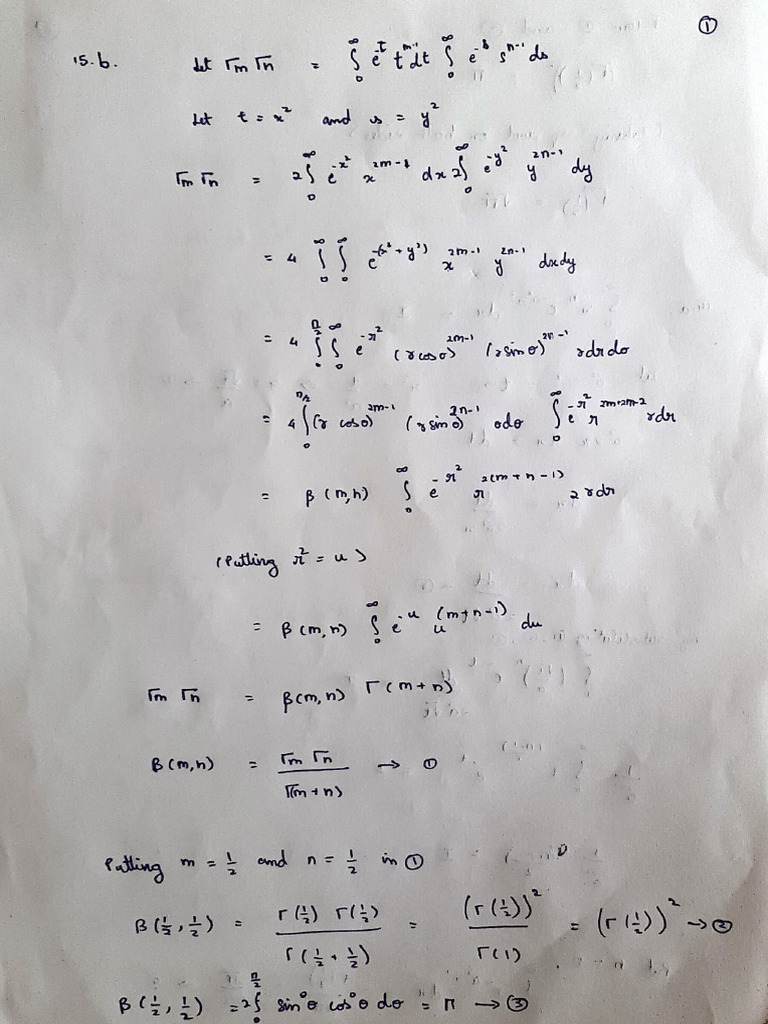 ①
15.b. Let Γm Γn = ∫₀^∞ e^-t t^m-1 dt ∫₀^∞ e^-s s^n-1 ds
Let t = x² and s = y²
Γm Γn = 2∫₀^∞ e^-x² x^2m-1 dx 2∫₀^∞ e^-y² y^2n-1 dy
= 4 ∫₀^∞ ∫₀^∞ e^-(x²+y²) x^2m-1 y^2n-1 dxdy
= 4 ∫₀^π/2 ∫₀^∞ e^-r² (r cosθ)^2m-1 (r sinθ)^2n-1 rdrdθ
= 4 ∫₀^π/2 (r cosθ)^2m-1 (r sinθ)^2n-1 θdθ ∫₀^∞ e^-r² r^2m+2n-2 rdr
= β(m,n) ∫₀^∞ e^-r² r^2(m+n-1) 2rdr
(Putting r² = u)
= β(m,n) ∫₀^∞ e^-u u^(m+n-1) du
Γm Γn = β(m,n) Γ(m+n)
β(m,n) = Γm Γn / Γ(m+n) → ①
Putting m = 1/2 and n = 1/2 in ①
β(1/2, 1/2) = Γ(1/2) Γ(1/2) / Γ(1/2 + 1/2) = (Γ(1/2))² / Γ(1) = (Γ(1/2))² → ②
β(1/2, 1/2) = 2∫₀^π/2 sin⁰θ cos⁰θ dθ = π → ③